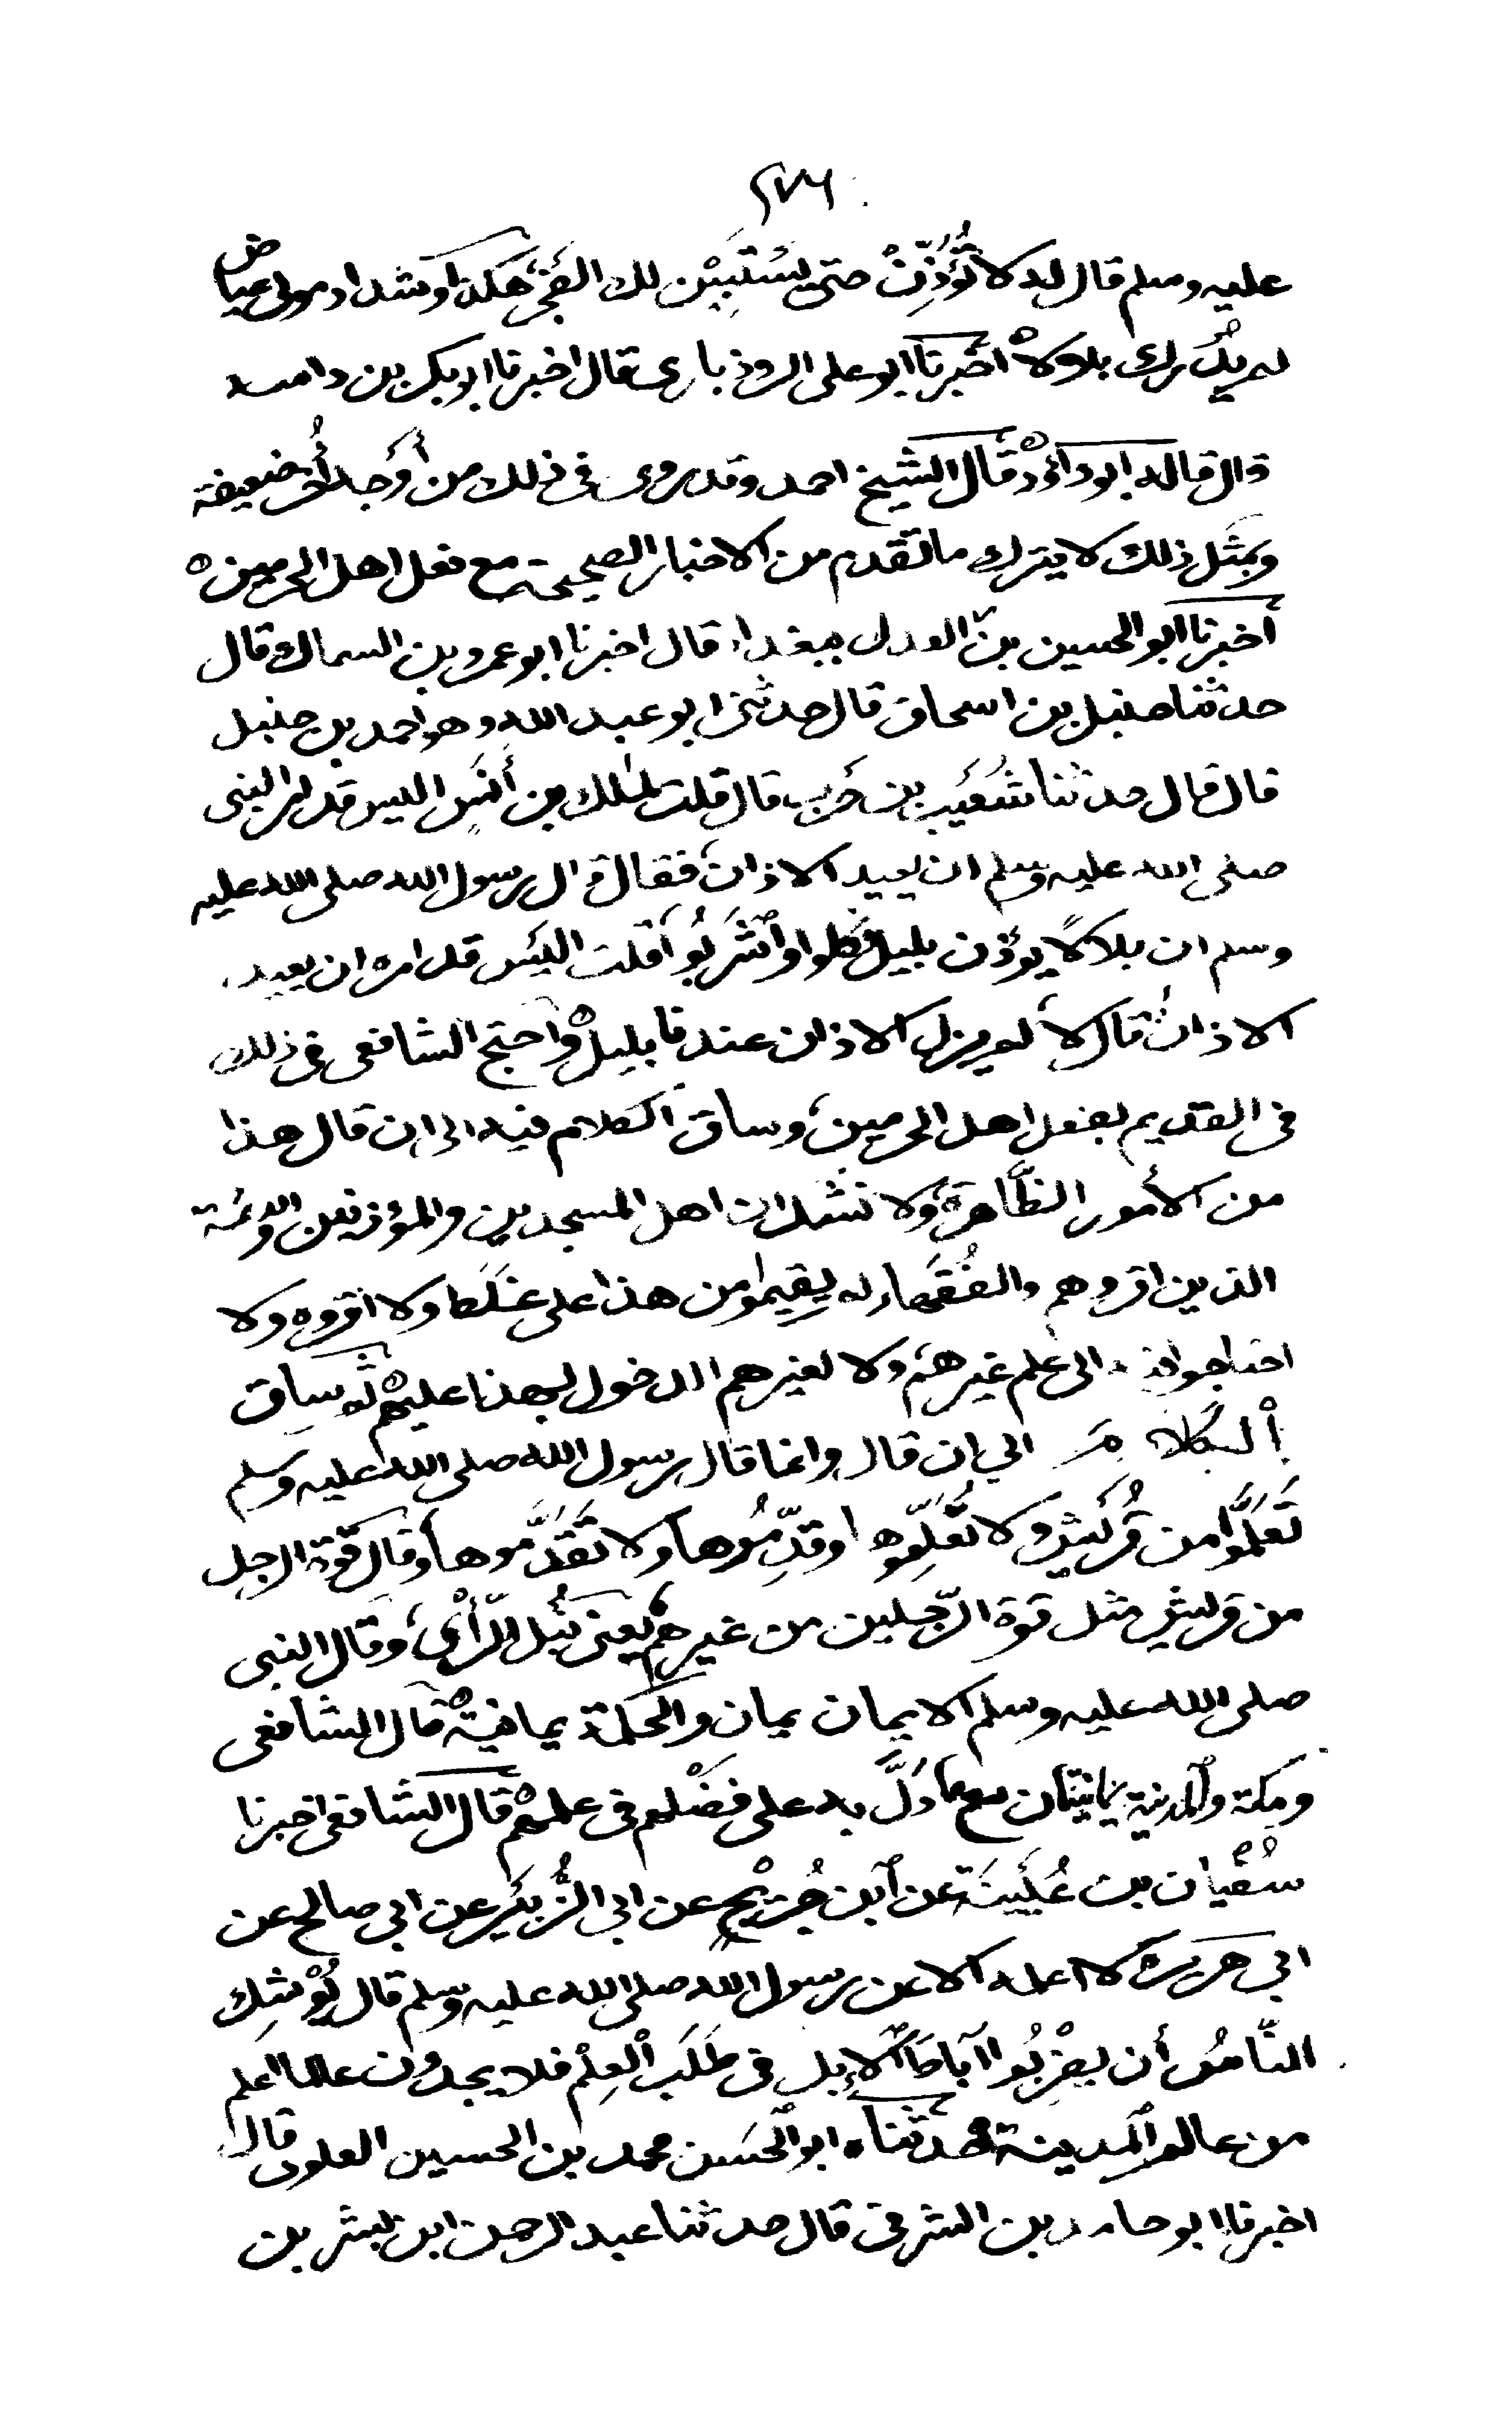 ٢٧٦
عليه وسلم قال له لا تُؤَذِّنْ حتى يستَبِيْن لك الفَجْرُ هكذا وشداد مولى عياض
لم يُدرك بلالا ه أخبرنا ابو على الروذبارى قال اخبرنا ابو بكر بن داسه
قال قاله ابو داؤد ه قال الشيخ احمد وقد روى فى ذلك من أوْجه أُخَر ضعيفة
وبمثل ذلك لا يترك ما تقدم من الاخبار الصحيحة مع فعل اهل الحرمين ه
أخبرنا ابو الحسين بن العدل ببغداد قال اخبرنا ابو عمرو بن السماك قال
حدثنا حنبل بن اسحاق قال حدثنى ابو عبد الله وهو احمد بن حنبل
قال قال حدثنا شُعَيب بن حَرب قال قلت لمالك بن أنَس اليس قد امر النبى
صلى الله عليه وسلم ان يعيد الاذان، فقال قال رسول الله صلى الله عليه
وسلم ان بلالاً يؤذن بليل فكلوا وٱشْرَبُوا قلت اليْسَ قد امره ان يعيد
الاذان قال لا، لم يزل الاذان عندنا بليل ه واحتج الشافعى فى ذلك
فى القديم بفعل اهل الحرمين، وساق الكلام فيه الى ان قال هذا
من الأمور الظّاهرة، ولا نشك ان اهل المسجدين والمؤذنين والائمة
الذين اقروهم والفُقَهاء لم يقيموا من هذا على غَلَط ولا اقروه ولا
احتاجوا فيه الى علم غيرهم، ولا لغيرهم الدخول بهذا عليهم ه ثم ساق
ٱلكلام الي ان قال وانما قال رسول الله صلى الله عليه وسلم
تَعَلَّمُوا من قُرَيْشٍ ولا تُعَلِّموها وقدِّمُوها ولا تَقَدَّموها وقال قوة الرجل
من قريش مثل قوة الرّجلين من غيرهم، يعنى نُبْل الرّأْي، وقال النبى
صلى الله عليه وسلم الايمان يمان والحكمة يمانية ه قال الشافعى
ومكة وٱلمدينة يمانيتان مع ما دَلَّ به على فضْلهم فى علمهم ه قال الشافعى اخبرنا
سُفْيان بن عُيَيْنَة عن ٱبن جُرَيْجٍ عن ابى الزُّبَيْر عن ابي صالح عن
ابي هريرة لا اعلمه الا عن رسول الله صلى الله عليه وسلم قال يُوْشِك
النّاسُ أن يضْرِبُوا آباطَ ٱلإبل فى طَلَب ٱلعِلْم فلا يجدُون عالما اعلم
من عالم ٱلمدينة ه حدثناه ابو ٱلحَسَن محمد بن الحسين العلوى قال
اخبرنا ابو حامد بن الشرقى قال حدثنا عبد الرحمن ابن بشر بن